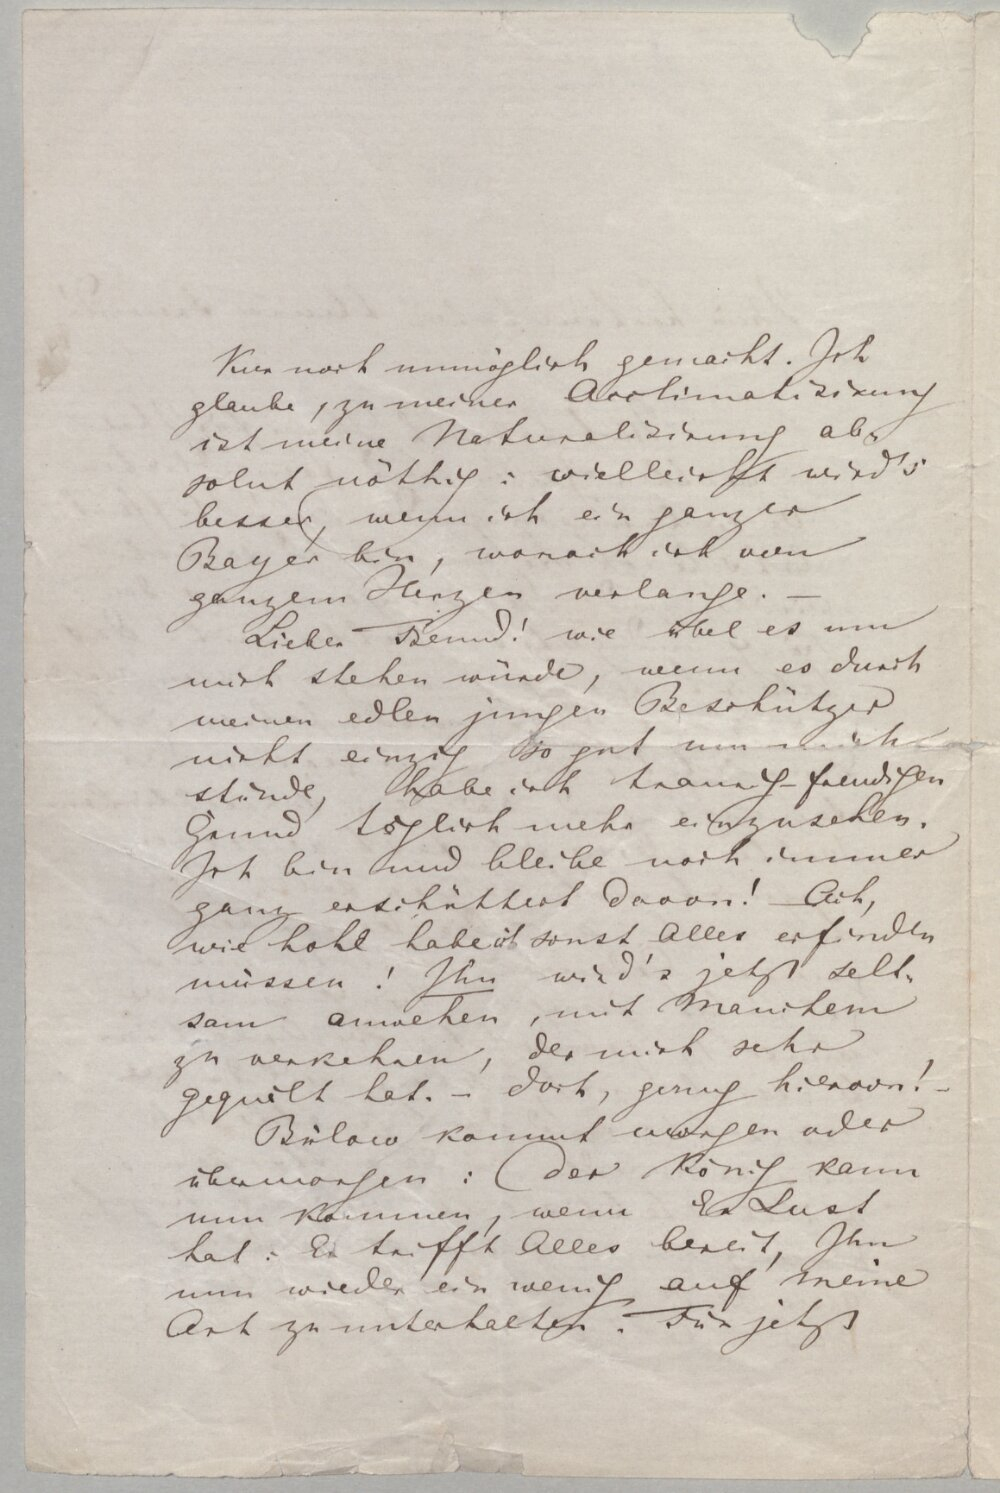 Kur noch unmöglich gemacht. Ich
glaube, zu meiner Acclimatisirung
ist meine Naturalisirung ab-
solut nöthig: vielleicht wird's
besser, wenn ich ein ganzer
Bayer bin, wonach ich von
ganzem Herzen verlange. —
Lieber Freund! wie übel es um
mich stehen würde, wenn es durch
meinen edlen jungen Beschützer
nicht einzig so gut um mich
stünde, habe ich traurig-freudigen
Grund täglich mehr einzusehen.
Ich bin und bleibe noch immer
ganz erschüttert davon! Ach,
wie hohl habe ich sonst Alles erfinden
müssen! Ihn wird's jetzt selt-
sam anwehen, mit Manchem
zu verkehren, der mich sehr
gequält hat. – doch, genug hiervon! –
Bülow kommt morgen oder
übermorgen: Der König kann
nun kommen, wenn Er Lust
hat: Er trifft Alles bereit, Ihn
nun wieder ein wenig auf meine
Art zu unterhalten. Für jetzt